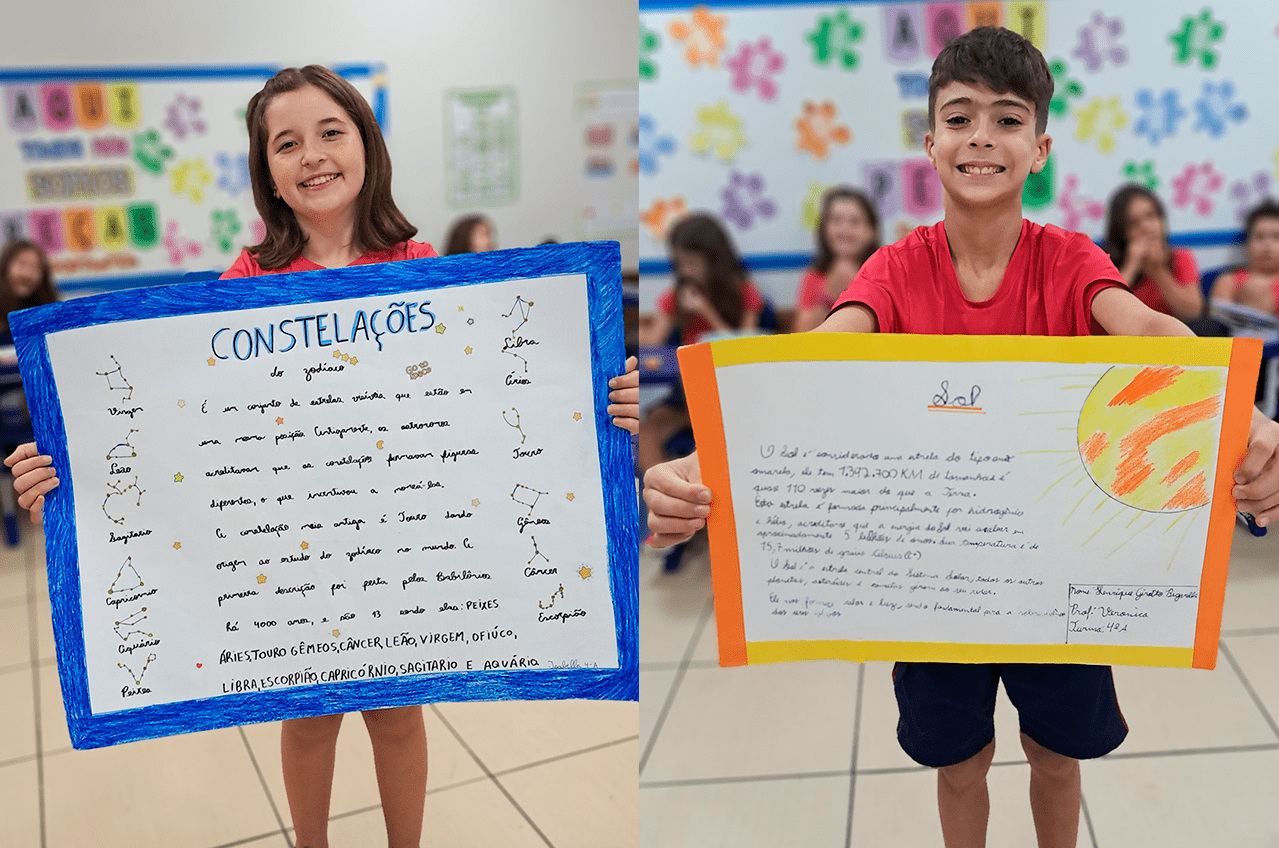 AQUI
PEÇAS
CONSTELAÇÕES
do zodíaco
GO TO SPACE
É um conjunto de estrelas visíveis que estão em
uma mesma posição Antigamente, os astronomos
acreditavam que as constelações formavam figuras
diferentes, o que incentivou a nomeá-las.
A constelação mais antiga é Touro dando
origem ao estudo do zodíaco no mundo. A
primeira descrição foi feita pelos Babilônios
há 4000 anos, e são 13 sendo elas: PEIXES
ÁRIES, TOURO GÊMEOS, CÂNCER, LEÃO, VIRGEM, OFIÚCO,
LIBRA, ESCORPIÃO, CAPRICÓRNIO, SAGITARIO E AQUÁRIO
Isabella 4-A
Virgem
Leão
Sagitario
Capricornio
Aquário
Peixes
Libra
Áries
Touro
Gêmeos
Câncer
Escorpião
AQUI
Sol
O Sol é considerado uma estrela do tipo anã
amarela, ele tem 1.392.700 KM de tamanho e é
quase 110 vezes maior do que a Terra.
Esta estrela é formada principalmente por hidrogênio
e hélio, acredita-se que a energia do Sol vai acabar em
aproximadamente 5 bilhões de anos. Sua temperatura é de
15,7 milhões de graus Celsius (C°)
O Sol é a estrela central do Sistema Solar, todos os outros
planetas, asteróides e cometas giram ao seu redor.
Ele nos fornece calor e luz, sendo fundamental para a
dos seres vivos
Nome: Henrique Girotto
Prof: Veronica
Turma: 4º A